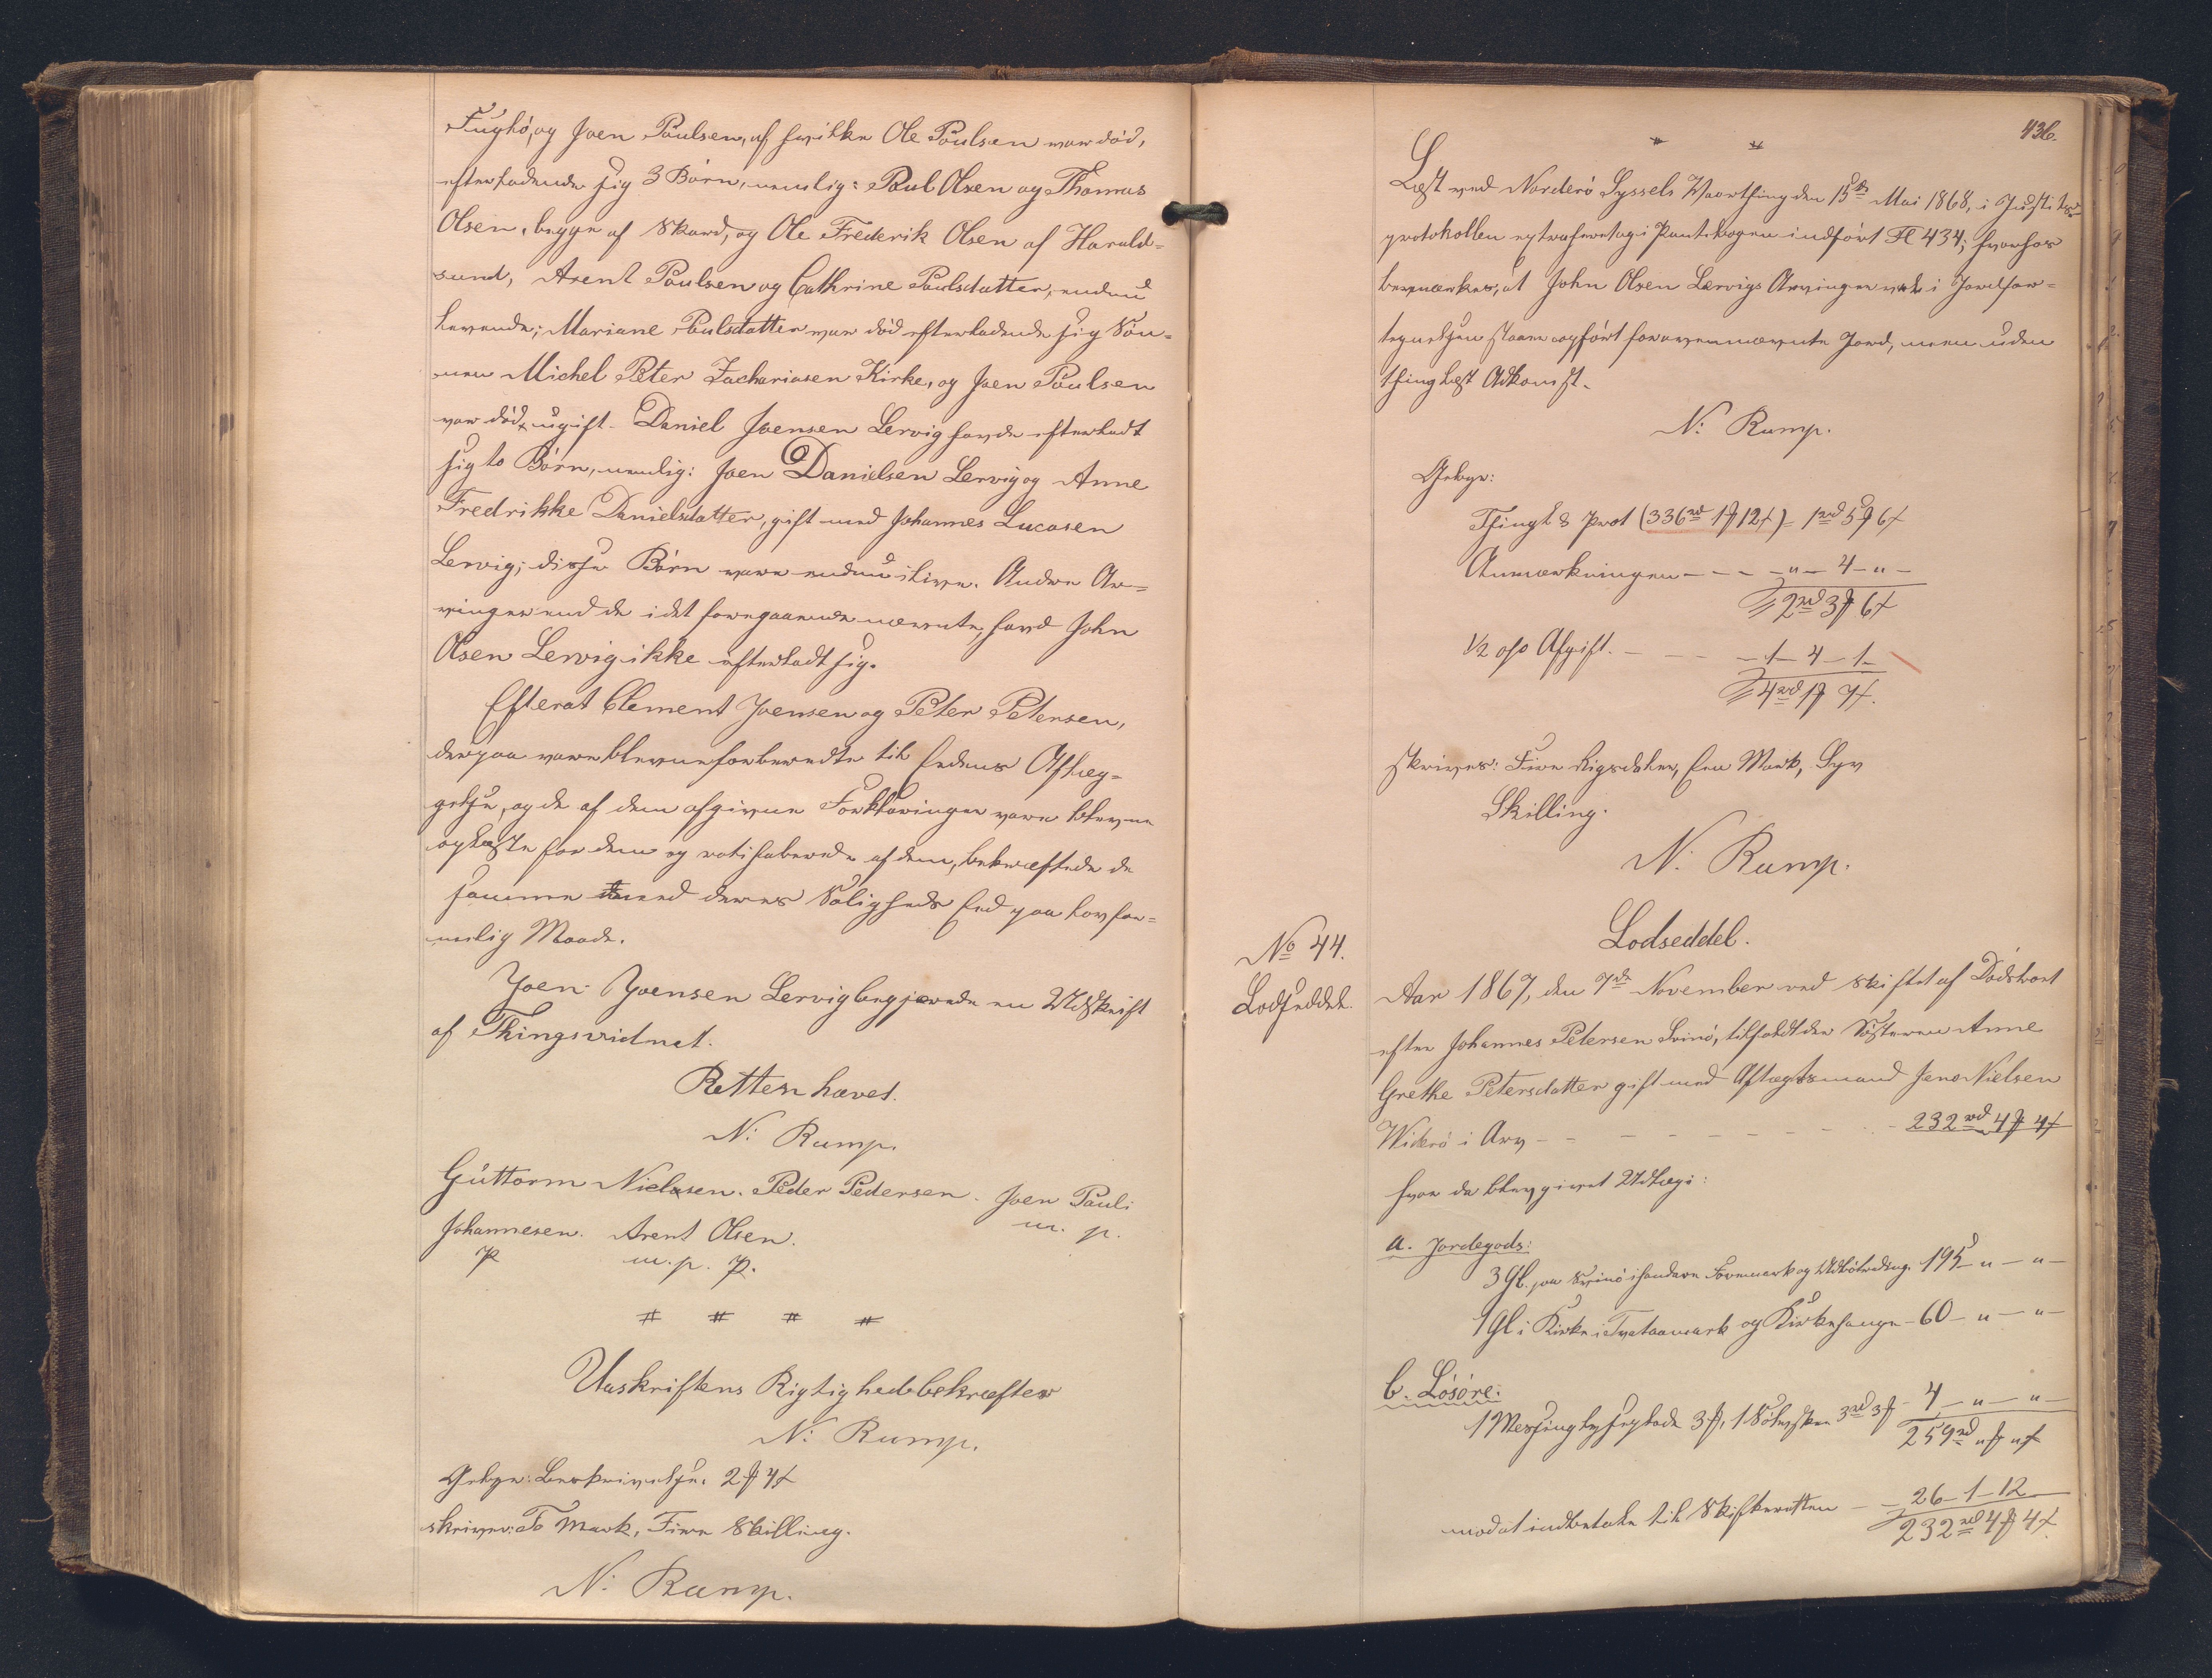 Fuglø, og Joen Poulsen, af hvilke Ole Poulsen var død,
efterladende sig 3 Børn, nemlig: Poul Olsen og Thomas
Olsen, begge af Skard, og Ole Frederik Olsen af Harald-
sund, Arent Poulsen og Cathrine Poulsdatter, endnu
levende; Mariane Poulsdatter var død efterladende sig Søn-
nen Michel Peter Zachariasen Kirke, og Joen Poulsen
var død ugift. Daniel Joensen Lervig havde efterladt
sig to Børn, nemlig: Joen Danielsen Lervig og Anne
Fredrikke Danielsdatter, gift med Johannes Lucasen
Lervig; disse Børn vare endnu ilive. Andre Ar-
vinger end de i det foregaaende nævnte, havd John
Olsen Lervig ikke efterladt sig.
Efterat Clement Joensen og Peter Petersen,
derpaa vare blevne forberedte til Edens Aflæg-
gelse, og de af dem afgivne Forklaringer vare blevne
oplæste for dem og ratihaberede af dem, bekræftede de
samme med deres Saligheds Eed paa lovfor-
melig Maade.
Joen Joensen Lervig begjærede en Udskrift
af Thingsvidnet.
Retten hævet.
N: Rump.
Guttorm Nielsen. Peder Pedersen. Joen Pauli
Johannesen. Arent Olsen. m. p.
P m. p. P.
# # # #
Udskriftens Rigtighed bekræfter
N: Rump.
Gebyr: Beskrivelse. 2 ℳ 4 ß
skriver: To Mark, Fire Skilling.
N: Rump.
436.
# #
Læst ved Norderø Syssels Vaarthing den 15de Mai 1868, i Justits-
protokollen extraheret og i Pantebogen indført Fl 434; hvorhos
bemærkes, at John Olsen Lervigs Arvinger vel i Jordefor-
tegnelsen staaer opført for ovennævnte Jord, men uden
thinglæst Adkomst.
N: Rump.
Gebyr:
Thingl & Prot (336 rd 1 ℳ 12 ß) = 1 rd 5 ℳ 6 ß
Anmærkningen - - - - " - 4 - " -
2 rd 3 ℳ 6 ß
1/2 % Afgift. - - - 1 - 4 - 1 -
4 rd 1 ℳ 7 ß.
skriver: Fire Rigsdaler, Een Mark, Syv
Skilling.
N: Rump.
Lodseddel.
No 44.
Lodseddel.
Aar 1867, den 7de November ved Skiftet af Dødsboet
efter Johannes Petersen Svinø, tilfaldt der Søsteren Anne
Grethe Petersdatter gift med Aftægtsmand Jens Nielsen
Viderø i Arv - - - - - - - - 232 rd 4 ℳ 4 ß
hvor da blev givet Udlæg i:
a. Jordegods:
3 Gl. paa Svinø i Lovemark og 195 - " - " -
1 Gl i Kirke i Tvetaamark og Kirkehauge - 60 - " - " -
b. Løsøre:
1 Messing 3 ℳ, 1 3 rd 3 ℳ - 4 - " - " -
259 rd " ℳ " ß
modat indbetale til Skifteretten - 26 - 1 - 12
232 rd 4 ℳ 4 ß.